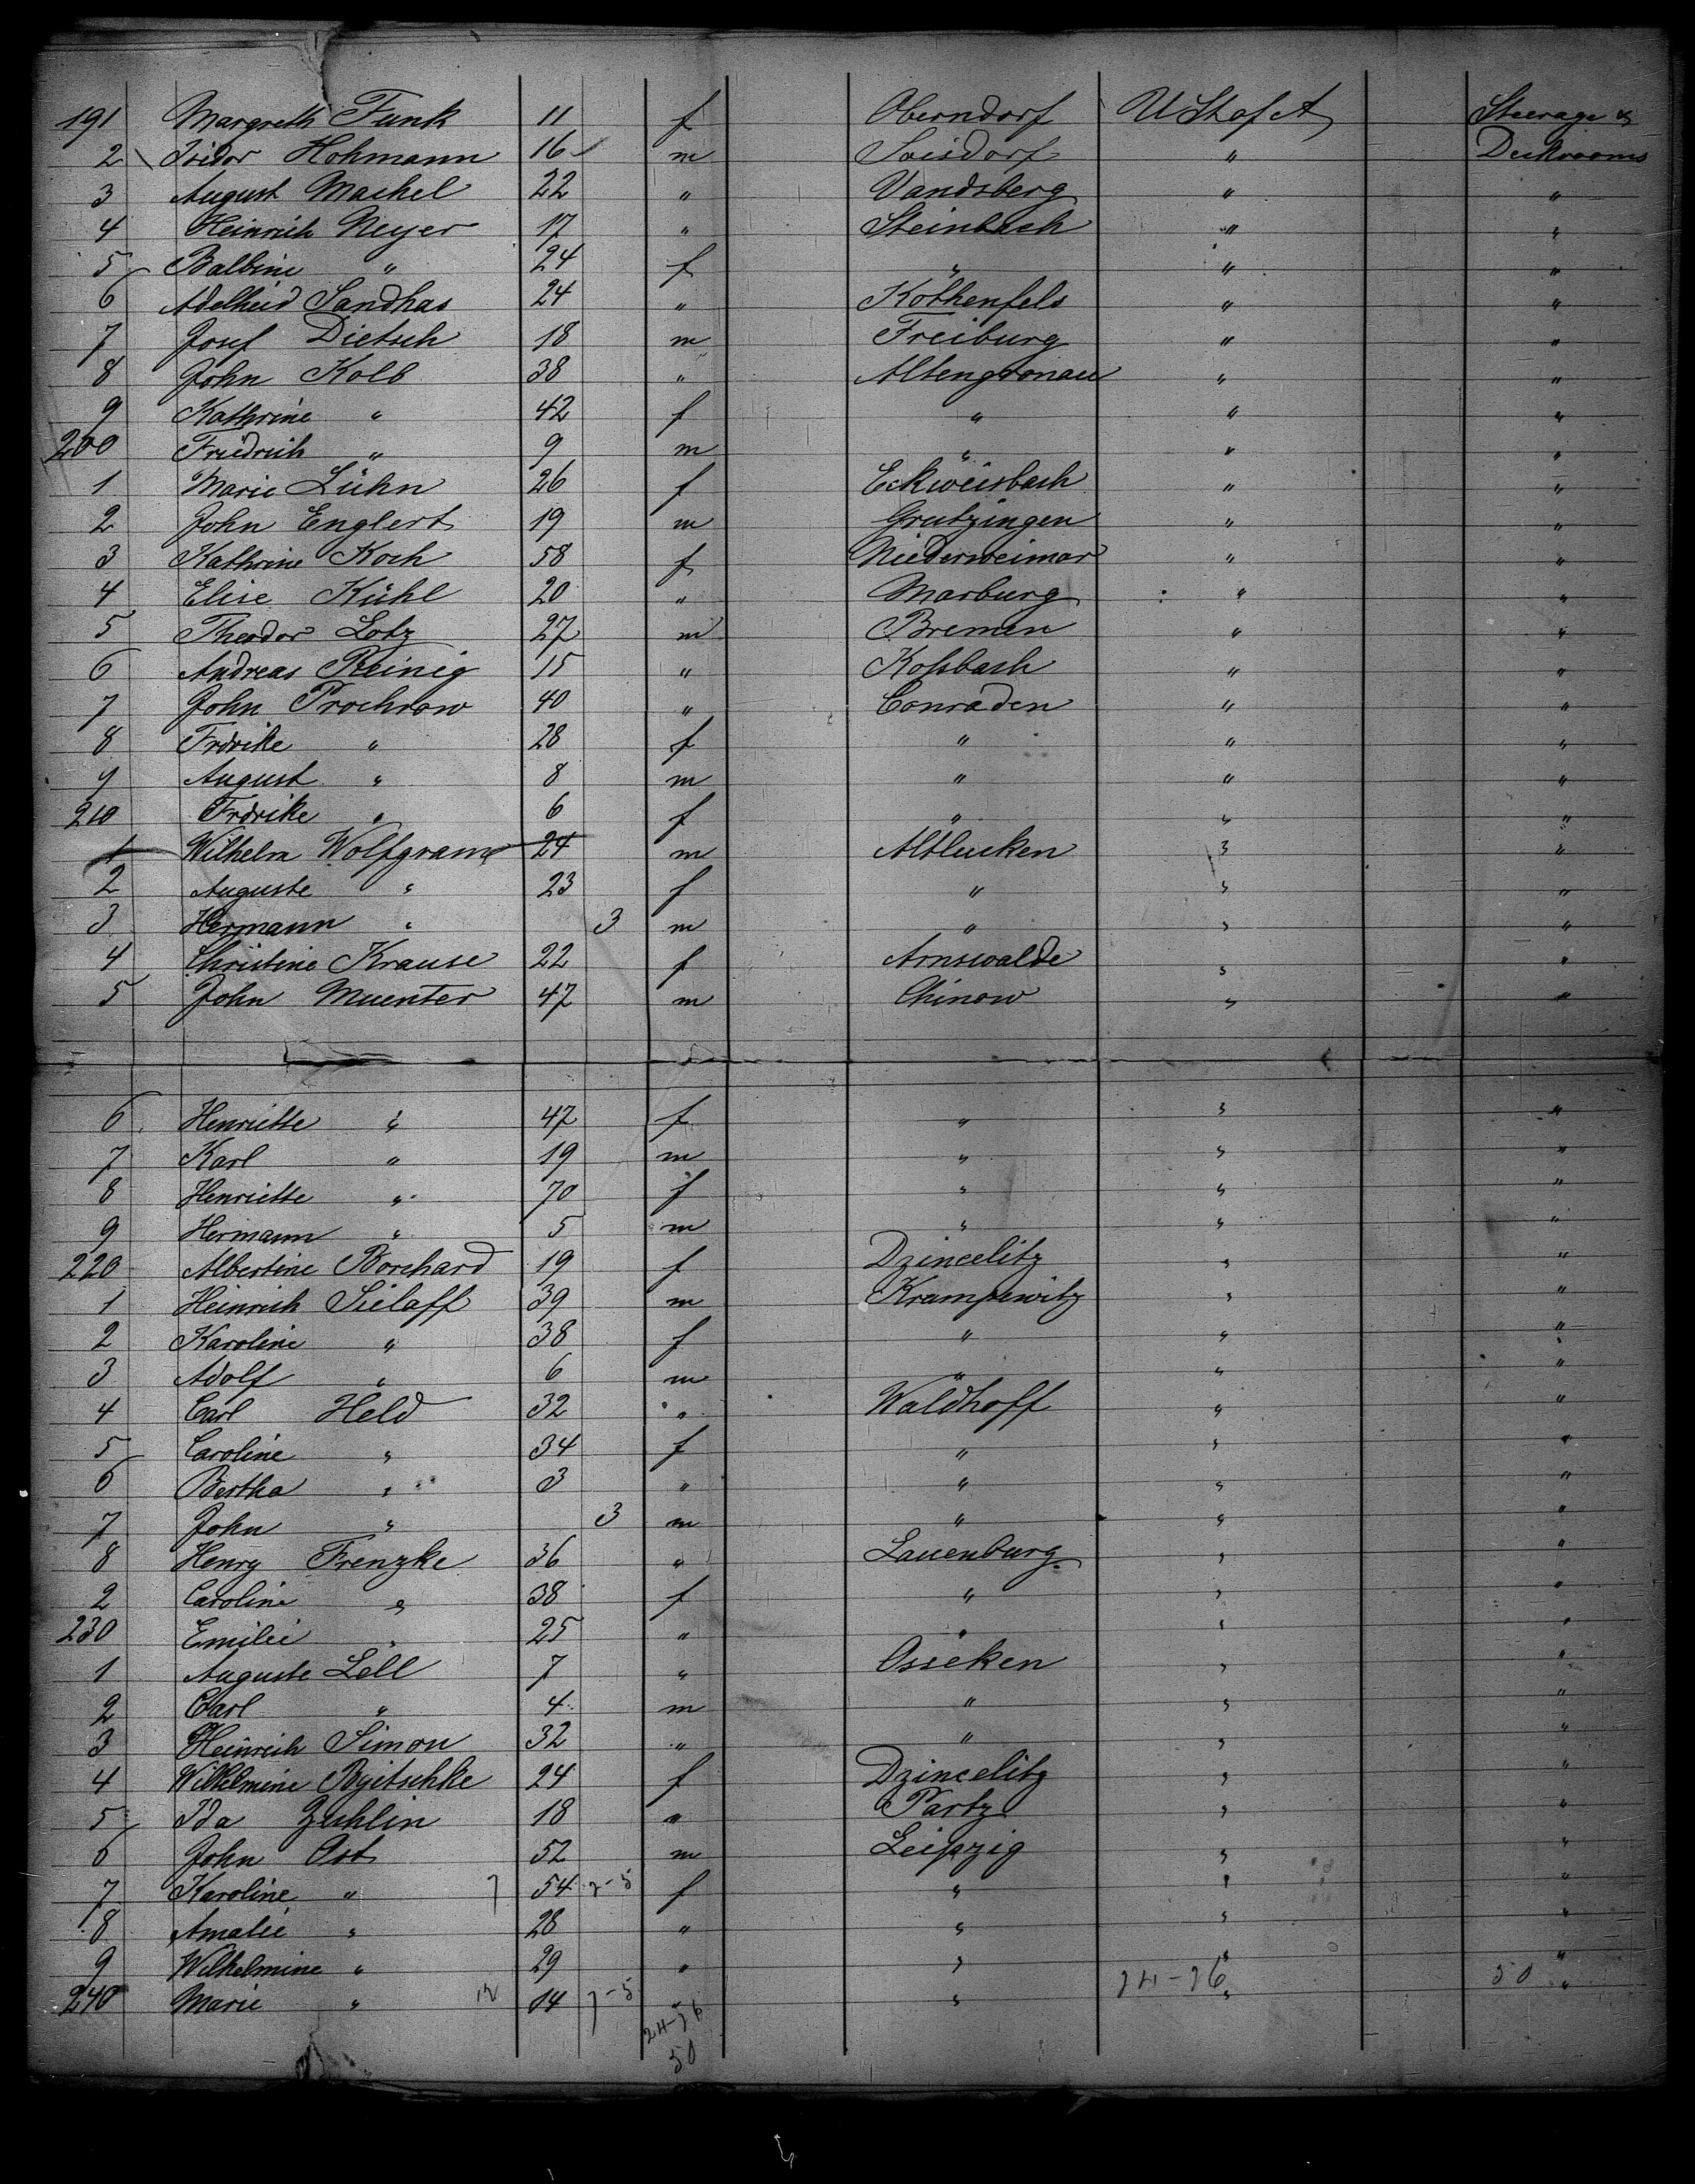 191 Margreth Funk 11 f Oberndorf U St of A Steerage &
2 Isidor Hohmann 16 m Soisdorf " Deckrooms
3 August Machel 22 " Vandsberg " "
4 Heinrich Meyer 17 " Steinbach " "
5 Balbine " 24 f " " "
6 Adelheid Sandhas 24 " Kothenfels " "
7 Josef Dietsch 18 m Freiburg " "
8 John Kolb 38 " Altengronau " "
9 Kathrine " 42 f " " "
200 Friedrich " 9 m " " "
1 Marie Lühn 26 f Eckweisbach " "
2 John Englert 19 m Grutzingen " "
3 Kathrine Koch 58 f Niederweimar " "
4 Elise Kühl 20 " Marburg " "
5 Theodor Lotz 27 m Bremen " "
6 Andreas Reinig 15 " Kossbach " "
7 John Prochnow 40 " Conraden " "
8 Frdrike " 28 f " " "
9 August " 8 m " " "
210 Frdrike " 6 f " " "
1 Wilhelm Wolfgram 24 m Altlucken " "
2 Auguste " 23 f " " "
3 Hermann " 3 m " " "
4 Christine Krause 22 f Arnswalde " "
5 John Muenter 47 m Chinow " "
6 Henriette " 47 f " " "
7 Karl " 19 m " " "
8 Henriette " 70 f " " "
9 Hermann " 5 m " " "
220 Albertine Borchard 19 f Dzincelitz " "
1 Heinrich Sielaff 39 m Krampewitz " "
2 Karoline " 38 f " " "
3 Adolf " 6 m " " "
4 Carl Held 32 " Waldhoff " "
5 Caroline " 34 f " " "
6 Bertha " 3 " " " "
7 John " 3 m " " "
8 Henry Frenzke 36 " Lauenburg " "
2 Caroline " 38 f " " "
230 Emilie " 25 " " " "
1 Auguste Lell 7 " Osseken " "
2 Carl " 4 m " " "
3 Heinrich Simon 32 " " " "
4 Wilhelmine 24 f Dzincelitz " "
5 Ida Zechlin 18 " Partz " "
6 John Ost 52 m Leipzig " "
7 Karoline " 54 f " " "
8 Amalie " 28 " " " "
9 Wilhelmine " 29 " " " "
240 Marie " 14 " " " 50 "
50